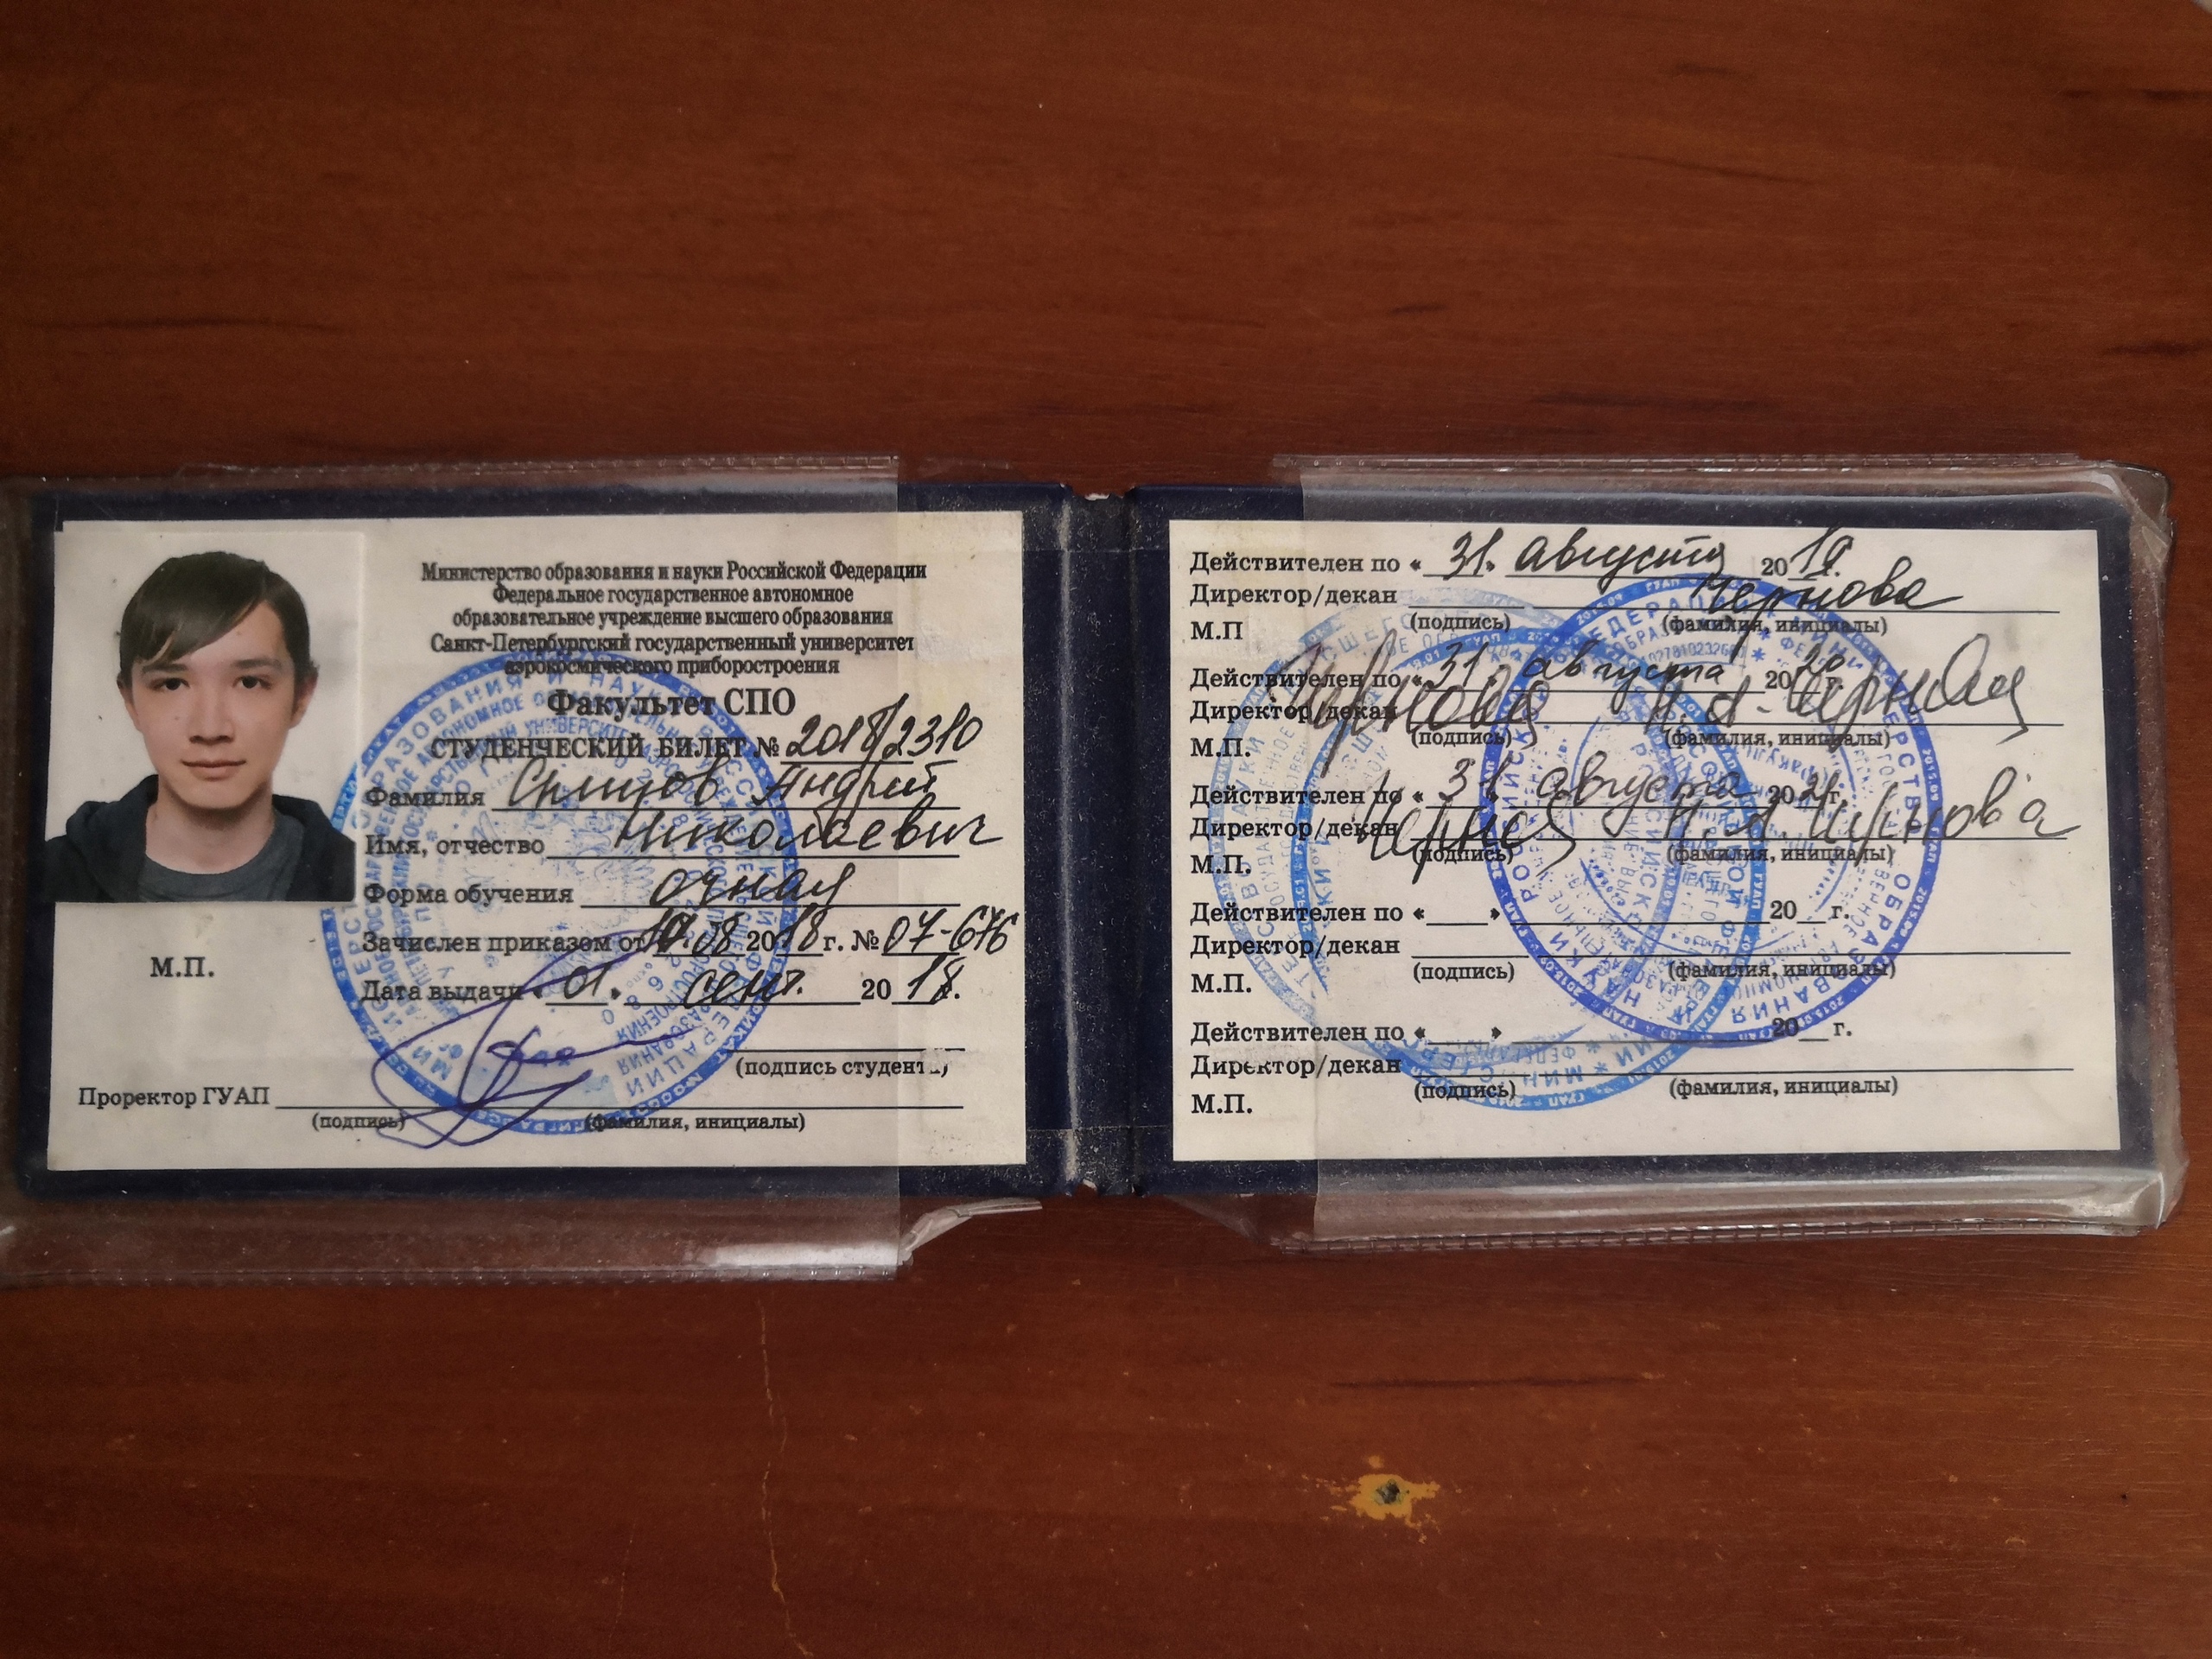 Министерство образования и науки Российской Федерации
Федеральное государственное автономное
образовательное учреждение высшего образования
Санкт-Петербургский государственный университет
аэрокосмического приборостроения
Факультет СПО
СТУДЕНЧЕСКИЙ БИЛЕТ № 2018/2310
Фамилия Андрей
Имя, отчество Николаевич
Форма обучения очная
Зачислен приказом от .08 2018 г. № 07-676
Дата выдачи « 01 » сент. 2018.
(подпись студента)
М.П.
Проректор ГУАП
(подпись) (фамилия, инициалы)
Действителен по « 31 » августа 2019 г.
Директор/декан Чернова
М.П (подпись) (фамилия, инициалы)
Действителен по « 31 » августа 2020 г.
Директор/декан Чернова Н.А. Чернова
М.П. (подпись) (фамилия, инициалы)
Действителен по « 31 » августа 2021 г.
Директор/декан Н.А. Чернова
М.П. (подпись) (фамилия, инициалы)
Действителен по « » 20 г.
Директор/декан
М.П. (подпись) (фамилия, инициалы)
Действителен по « » 20 г.
Директор/декан
М.П. (подпись) (фамилия, инициалы)